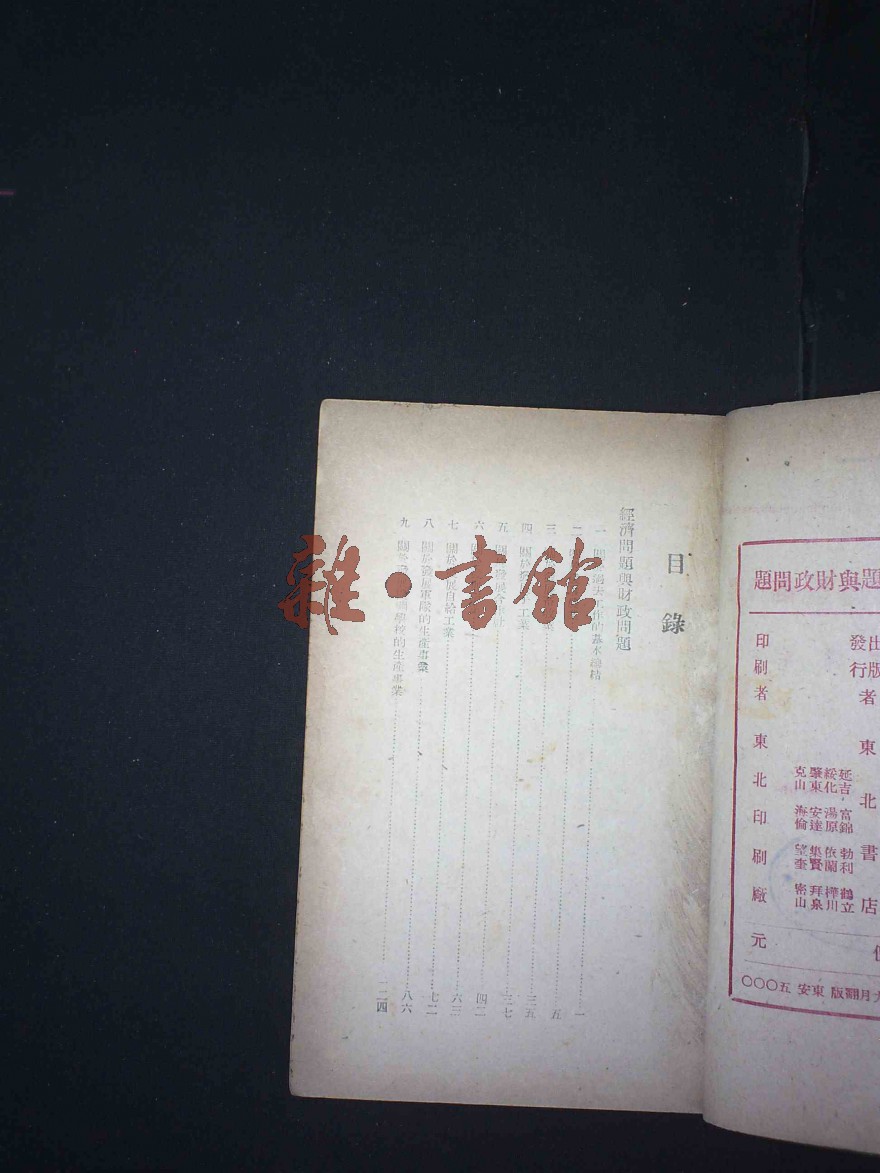 目錄
經濟問題與財政問題
一 關於 基本總結 一
二 五
三 業 三五
四 關於 工業 三七
五 關 發展 四二
六 關 六三
七 關於 展自給工業 七二
八 關於發展軍隊的生產事業 八六
九 關於發 學校的生產事業 一二四
雜·書館
題與財政問題
出版者
發行
東北書店
延吉 綏化 肇東 克山
富錦 湯原 安達 海倫
勃利 依蘭 集賢 望奎
鶴立 樺川 拜泉 密山
印刷者 東北印刷廠
元
月翻版 東安 五〇〇〇